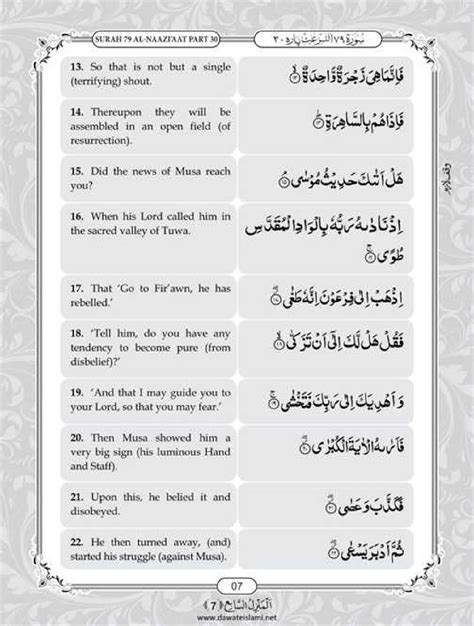 SURAH 79 AL-NAAZI'AAT PART 30
سورة ٧٩ النّٰزعٰت پاره ٣٠
13. So that is not but a single
(terrifying) shout.
فَاِنَّمَا هِیَ زَجْرَةٌ وَّاحِدَةٌ ﴿١٣﴾
14. Thereupon they will be
assembled in an open field (of
resurrection).
فَاِذَا هُمْ بِالسَّاهِرَةِ ﴿١٤﴾
15. Did the news of Musa reach
you?
هَلْ اَتٰىكَ حَدِیْثُ مُوْسٰی ﴿١٥﴾
وقف لازم
16. When his Lord called him in
the sacred valley of Tuwa.
اِذْ نَادٰىهُ رَبُّهٗ بِالْوَادِ الْمُقَدَّسِ
طُوًی ﴿١٦﴾
17. That ‘Go to Fir’awn, he has
rebelled.’
اِذْهَبْ اِلٰی فِرْعَوْنَ اِنَّهٗ طَغٰی ﴿١٧﴾
18. ‘Tell him, do you have any
tendency to become pure (from
disbelief)?’
فَقُلْ هَلْ لَّكَ اِلٰۤی اَنْ تَزَكّٰی ﴿١٨﴾
19. ‘And that I may guide you to
your Lord, so that you may fear.’
وَ اَهْدِیَكَ اِلٰی رَبِّكَ فَتَخْشٰی ﴿١٩﴾
20. Then Musa showed him a
very big sign (his luminous Hand
and Staff).
فَاَرٰىهُ الْاٰیَةَ الْكُبْرٰی ﴿٢٠﴾
21. Upon this, he belied it and
disobeyed.
فَكَذَّبَ وَ عَصٰی ﴿٢١﴾
22. He then turned away, (and)
started his struggle (against Musa).
ثُمَّ اَدْبَرَ یَسْعٰی ﴿٢٢﴾
07
اَلْمَنْزِلُ السَّابِع ﴿7﴾
www.dawateislami.net